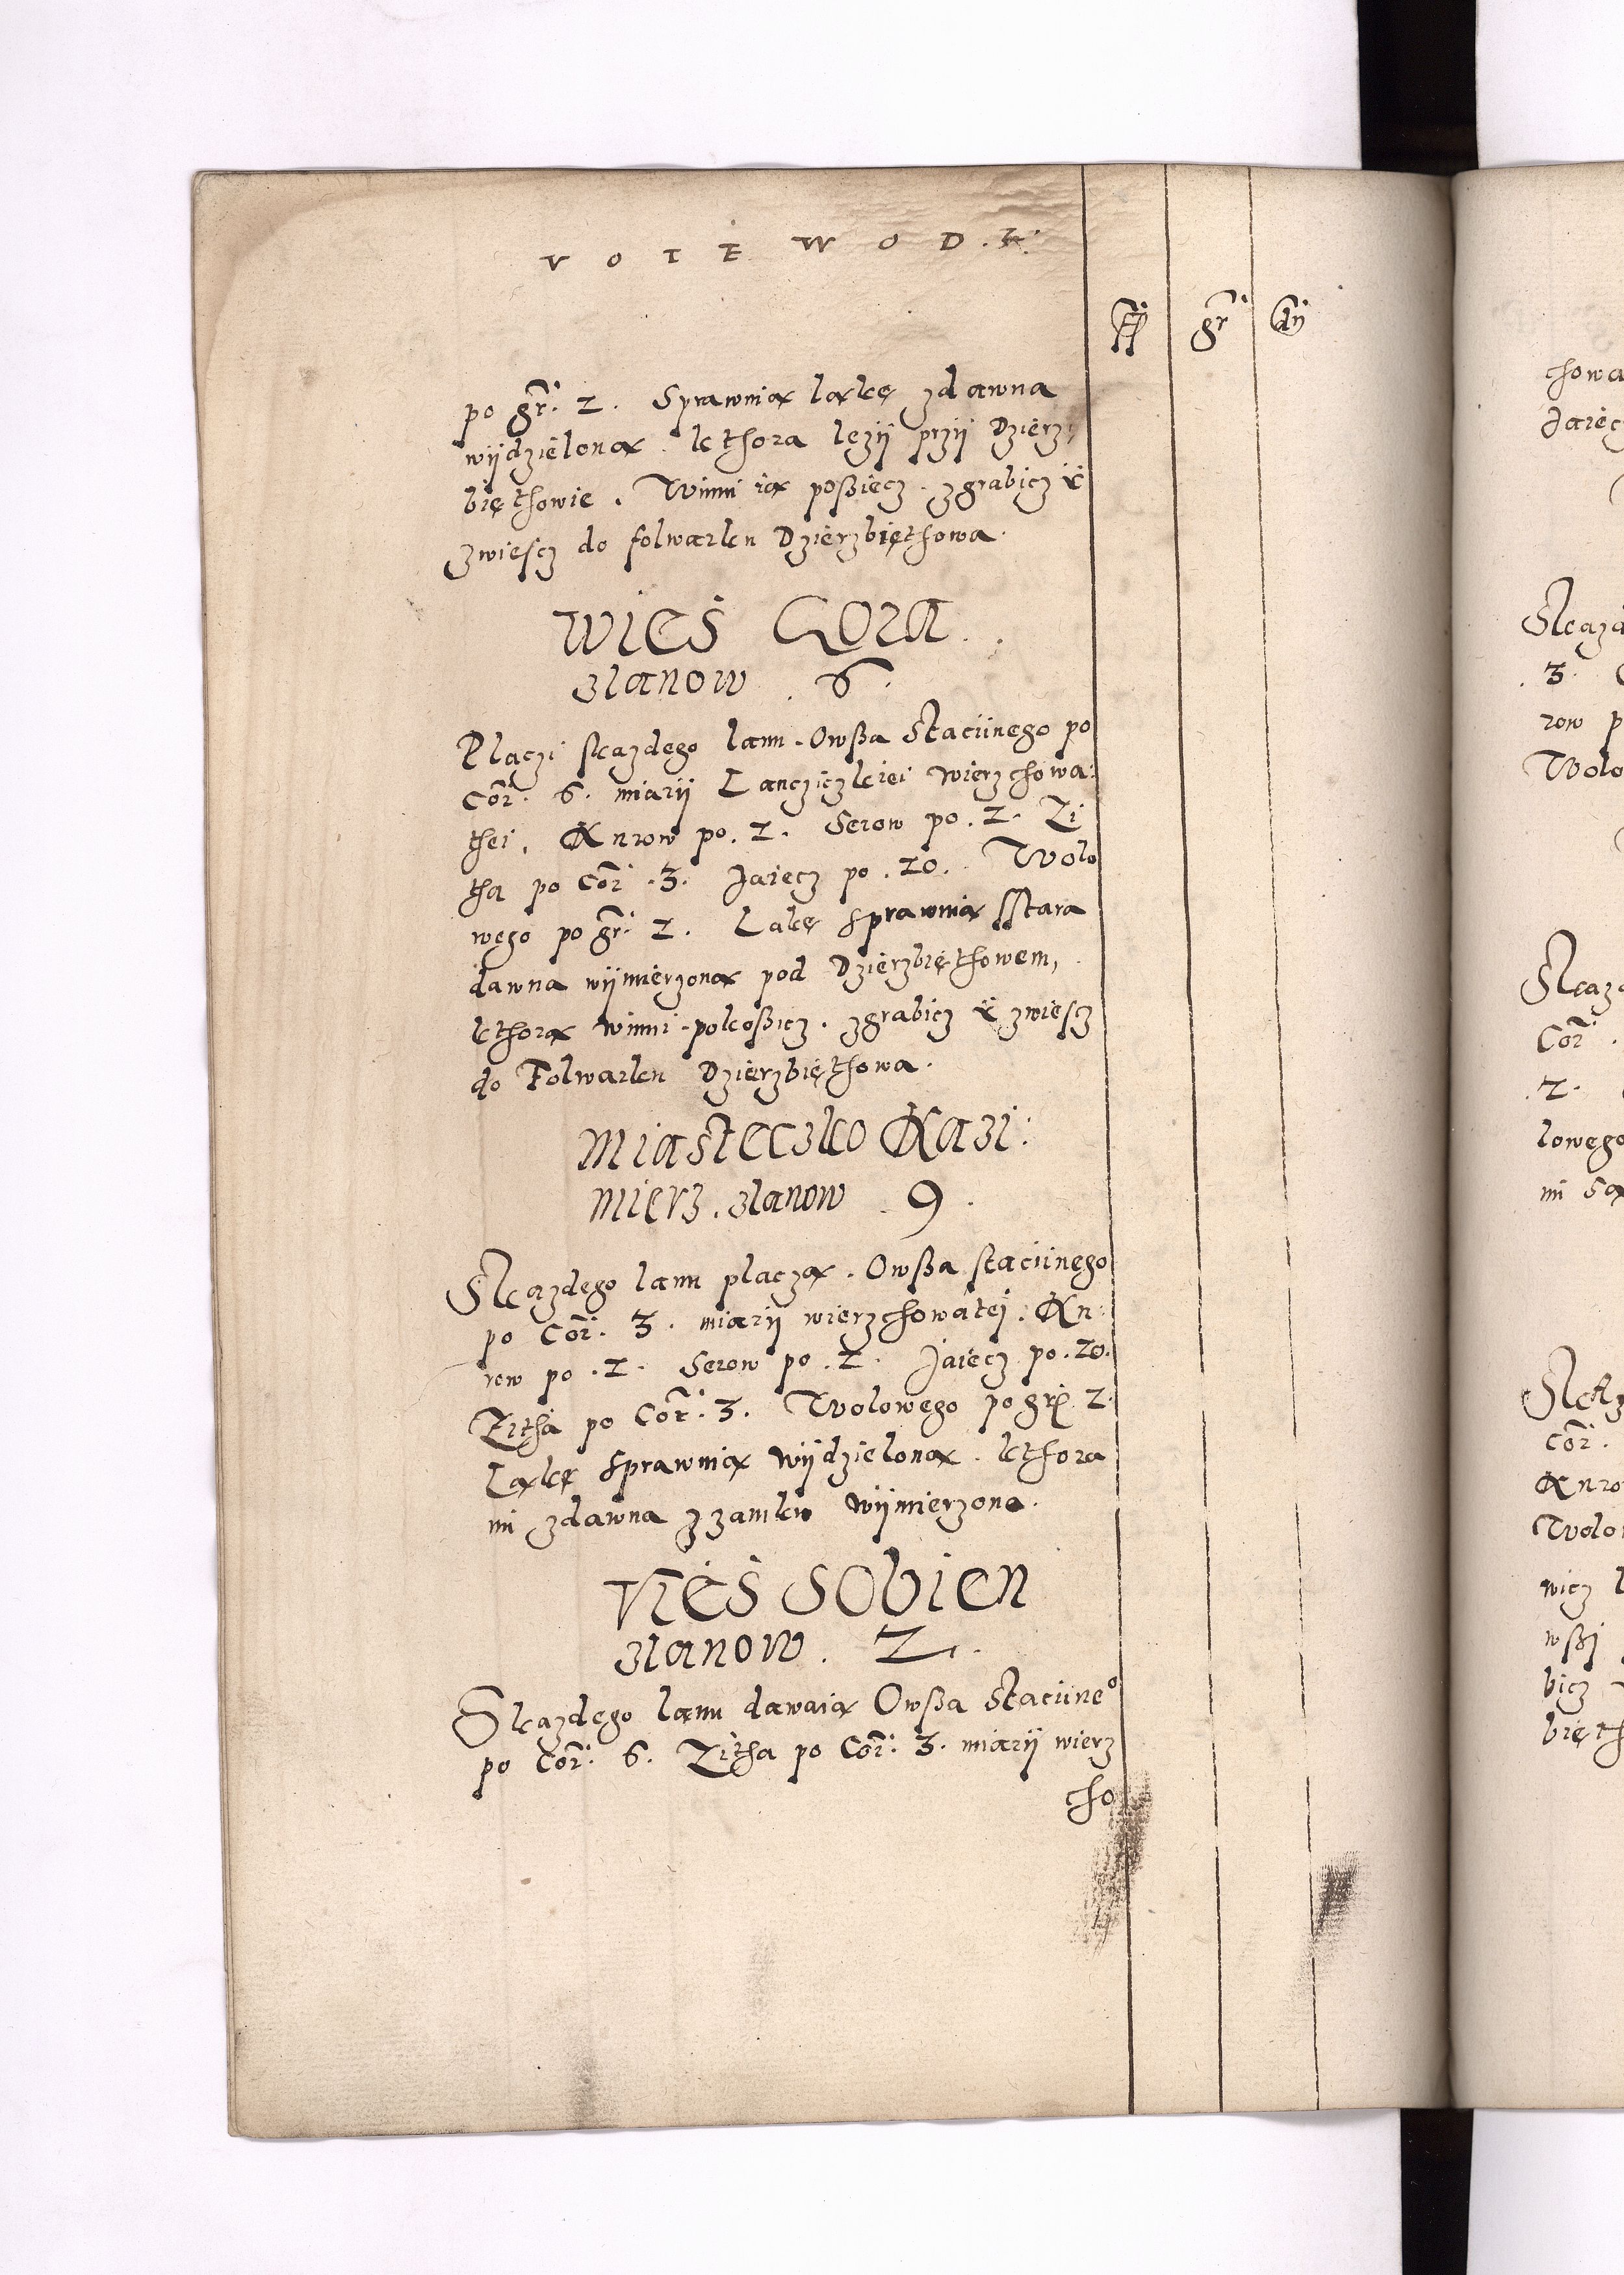 VOIEWOD.
fl gr d
po gr. 2. Sprawuią łąkę zdawna
wijdzieloną. kthora lezij przij Dzierz:
bięthowie. Winni ią posziecz. zgrabicz ÿ
zwiescz do folwarku Dzierzbięthowa.
WIES GORA.
z łanow. 6.
Płaczi skazdego łanu. Owsza Staciinego po
Cor. 6. miarij Lancziczkiei wierzchowa:
thei. Kurow po. 2. Serow po. 2. Zi
tha po Cor. 3. Jaiecz po. 20. Woło
wego po gr. 2. Łakę sprawuią Stara
dawna wijmierzoną pod Dzierzbięthowem,
kthorą winni pokosicz. zgrabicz ÿ zwiescz
do Folwarku Dzierzbięthowa.
Miasteczko Kazi:
mierz. z łanow. 9.
Skazdego łanu płaczą. Owsza staciinego
po Cor. 3. miarij wierzchowatej. Ku:
row po. 2. Serow po. 2. Jaiecz po. 20.
Zitha po Cor. 3. Wołowego po gr 2.
Łąkę sprawuią wijdzieloną. kthora
im zdawna z zamku wijmierzono.
WIES SOBIEN
z łanow. 2.
Skazdego łanu dawaią Owsza Staciineo
po Cor. 6. Zitha po Cor. 3. miarij wierz
cho
chowa
Jaiecz
3.
row p
Woło
Cor.
2.
łowego
Cor.
Kuro
Woło
wicz
bicz
bięth